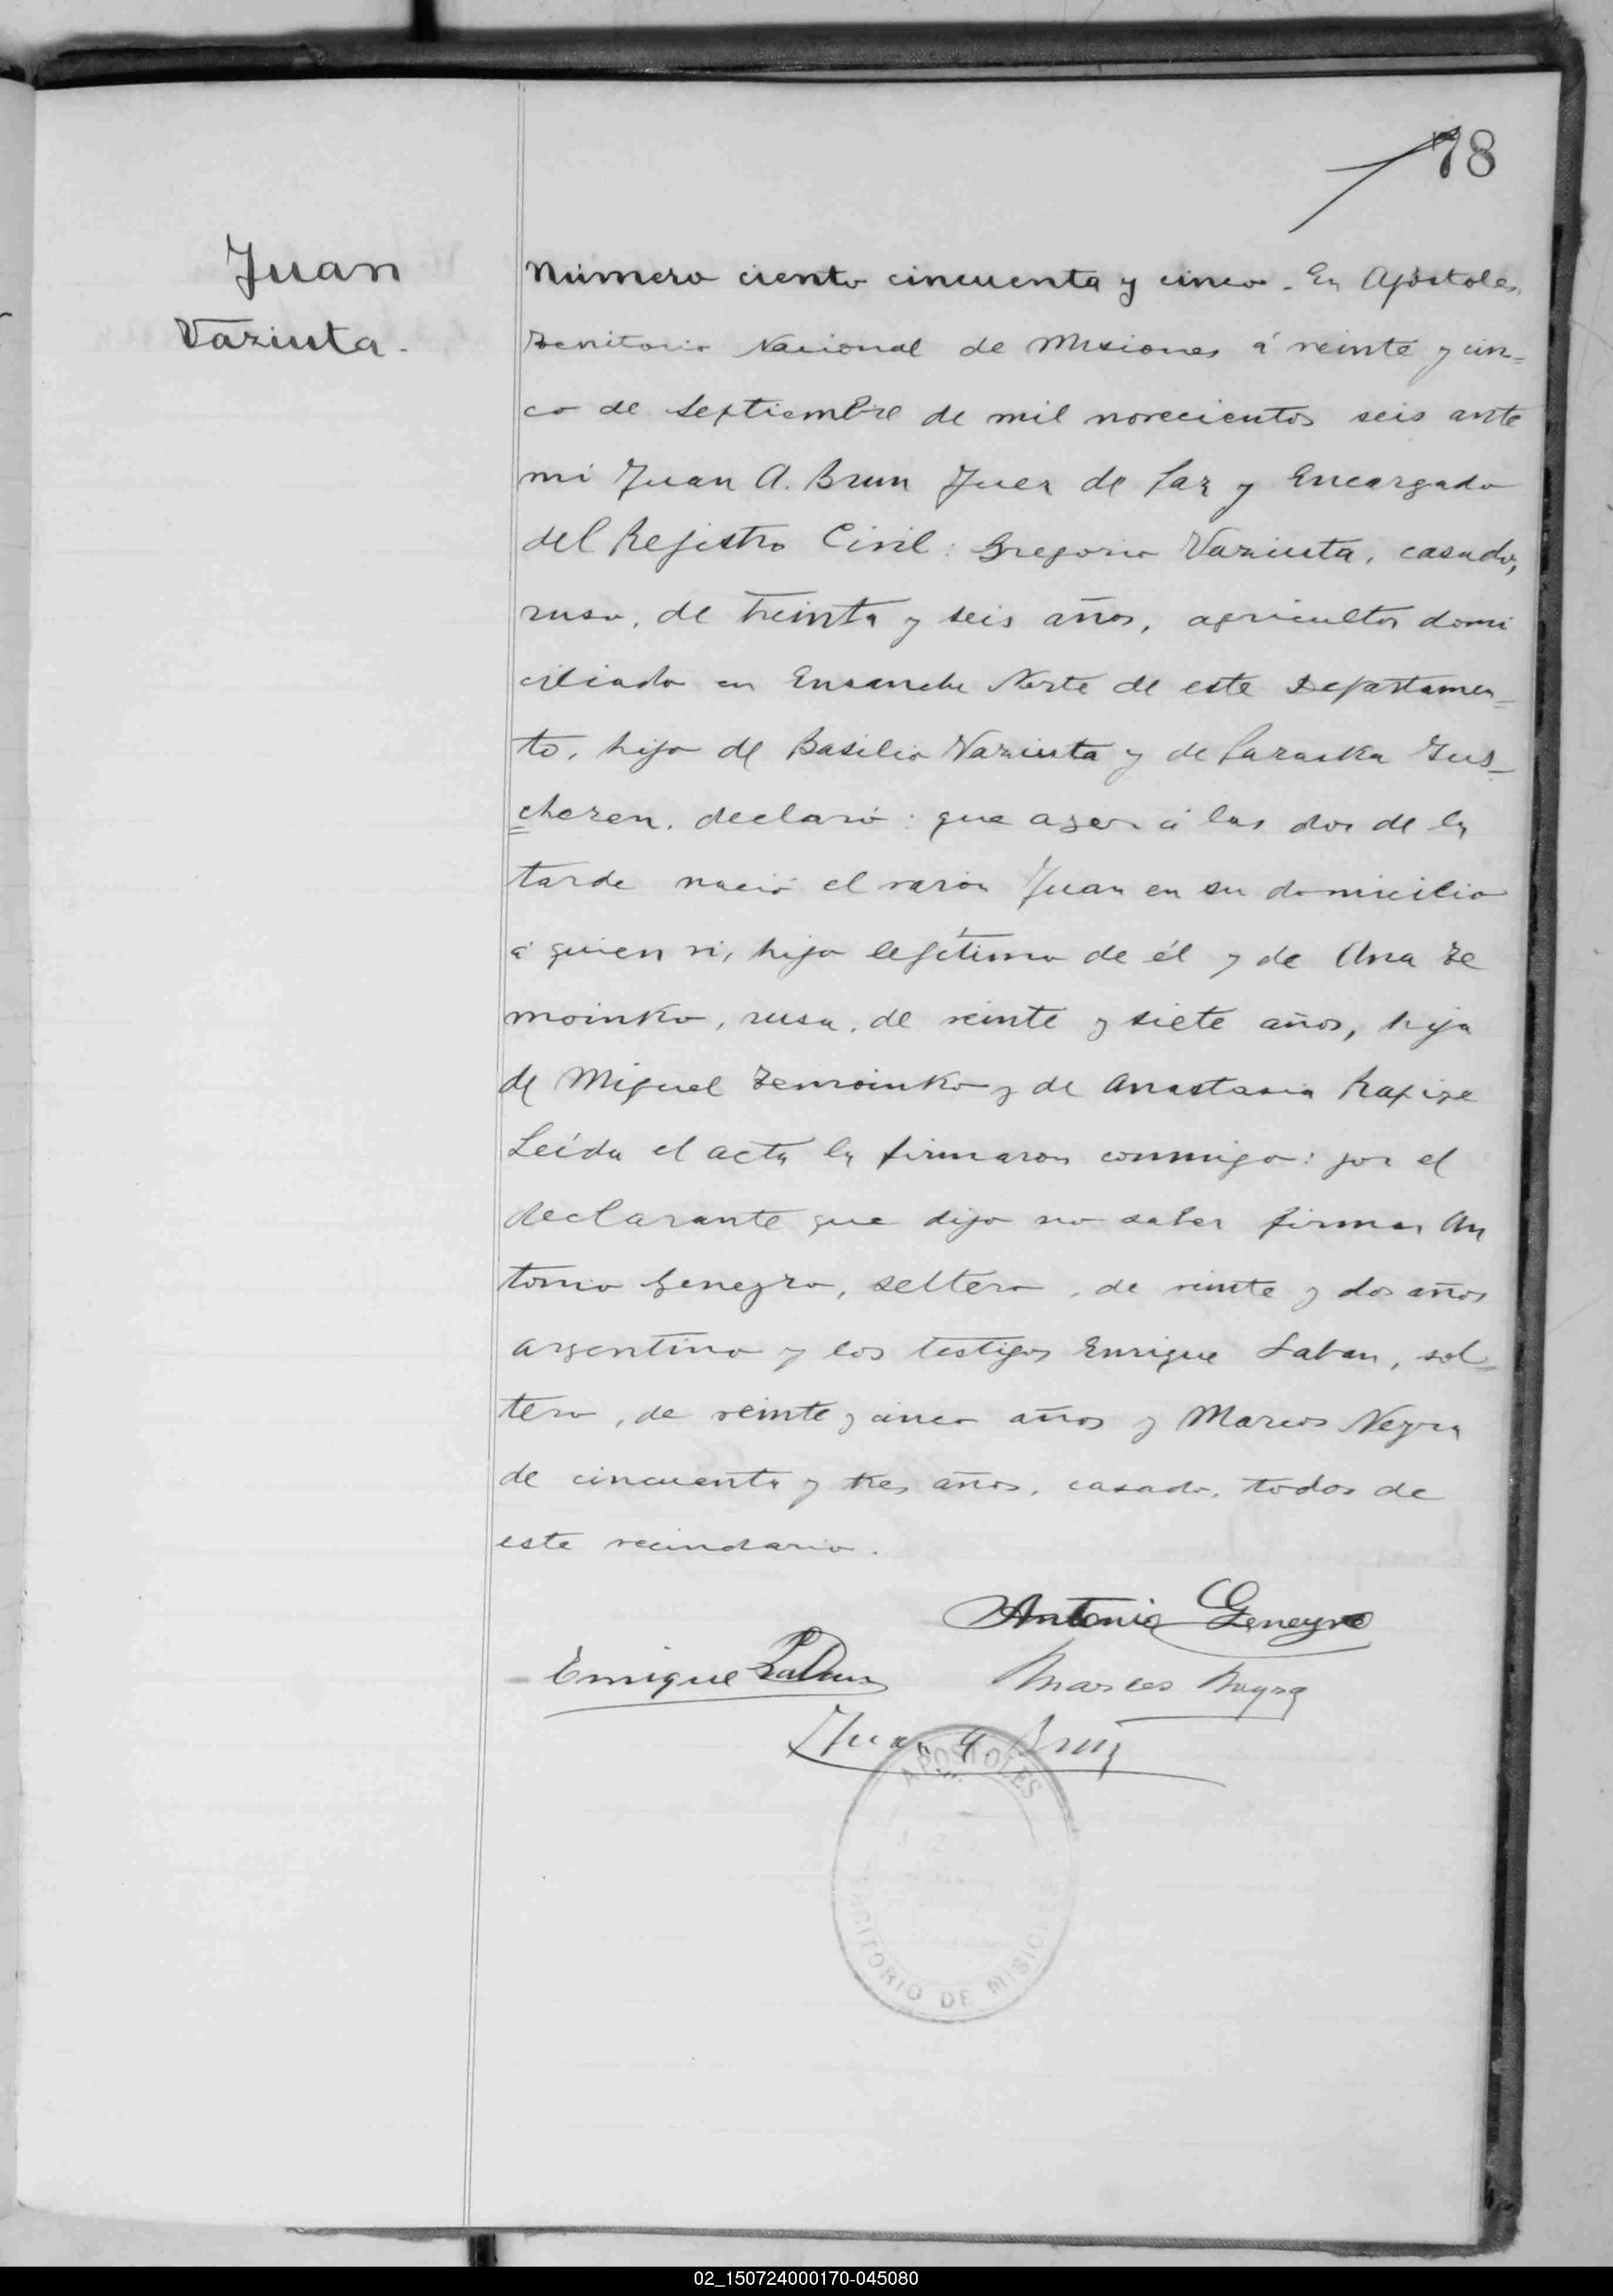 78
Juan
Vaziuta.
Número ciento cincuenta y cinco. En Apóstoles,
Territorio Nacional de Misiones á veinte y cin=
co de Septiembre de mil novecientos seis ante
mi Juan A. Brun Juez de Paz y Encargado
del Registro Civil: Gregorio Vaziuta, casado,
ruso, de treinta y seis años, agricultor domi
ciliado en Ensanche Norte de este Departamen=
to, hijo de Basilio Vaziuta y de Paraska Gus=
cheren, declaró: que ayer á las dos de la
tarde nació el varón Juan en su domicilio
á quien vi, hijo legítimo de él y de Ana Ze
moinko, rusa, de veinte y siete años, hija
de Miguel Zemoinko y de Anastasia
Leída el acta la firmaron conmigo: por el
declarante que dijo no saber firmar An
tonio Geneyro, soltero, de veinte y dos años
argentino y los testigos Enrique Laban, sol=
tero, de veinte y cinco años y Marcos Neyra
de cincuenta y tres años, casado, todos de
este vecindario.
Antonio Geneyro
Enrique Laban Marcos Neyra
Juan A. Brun
APOSTOLES
TERRITORIO DE MISIONES
02_150724000170-045080